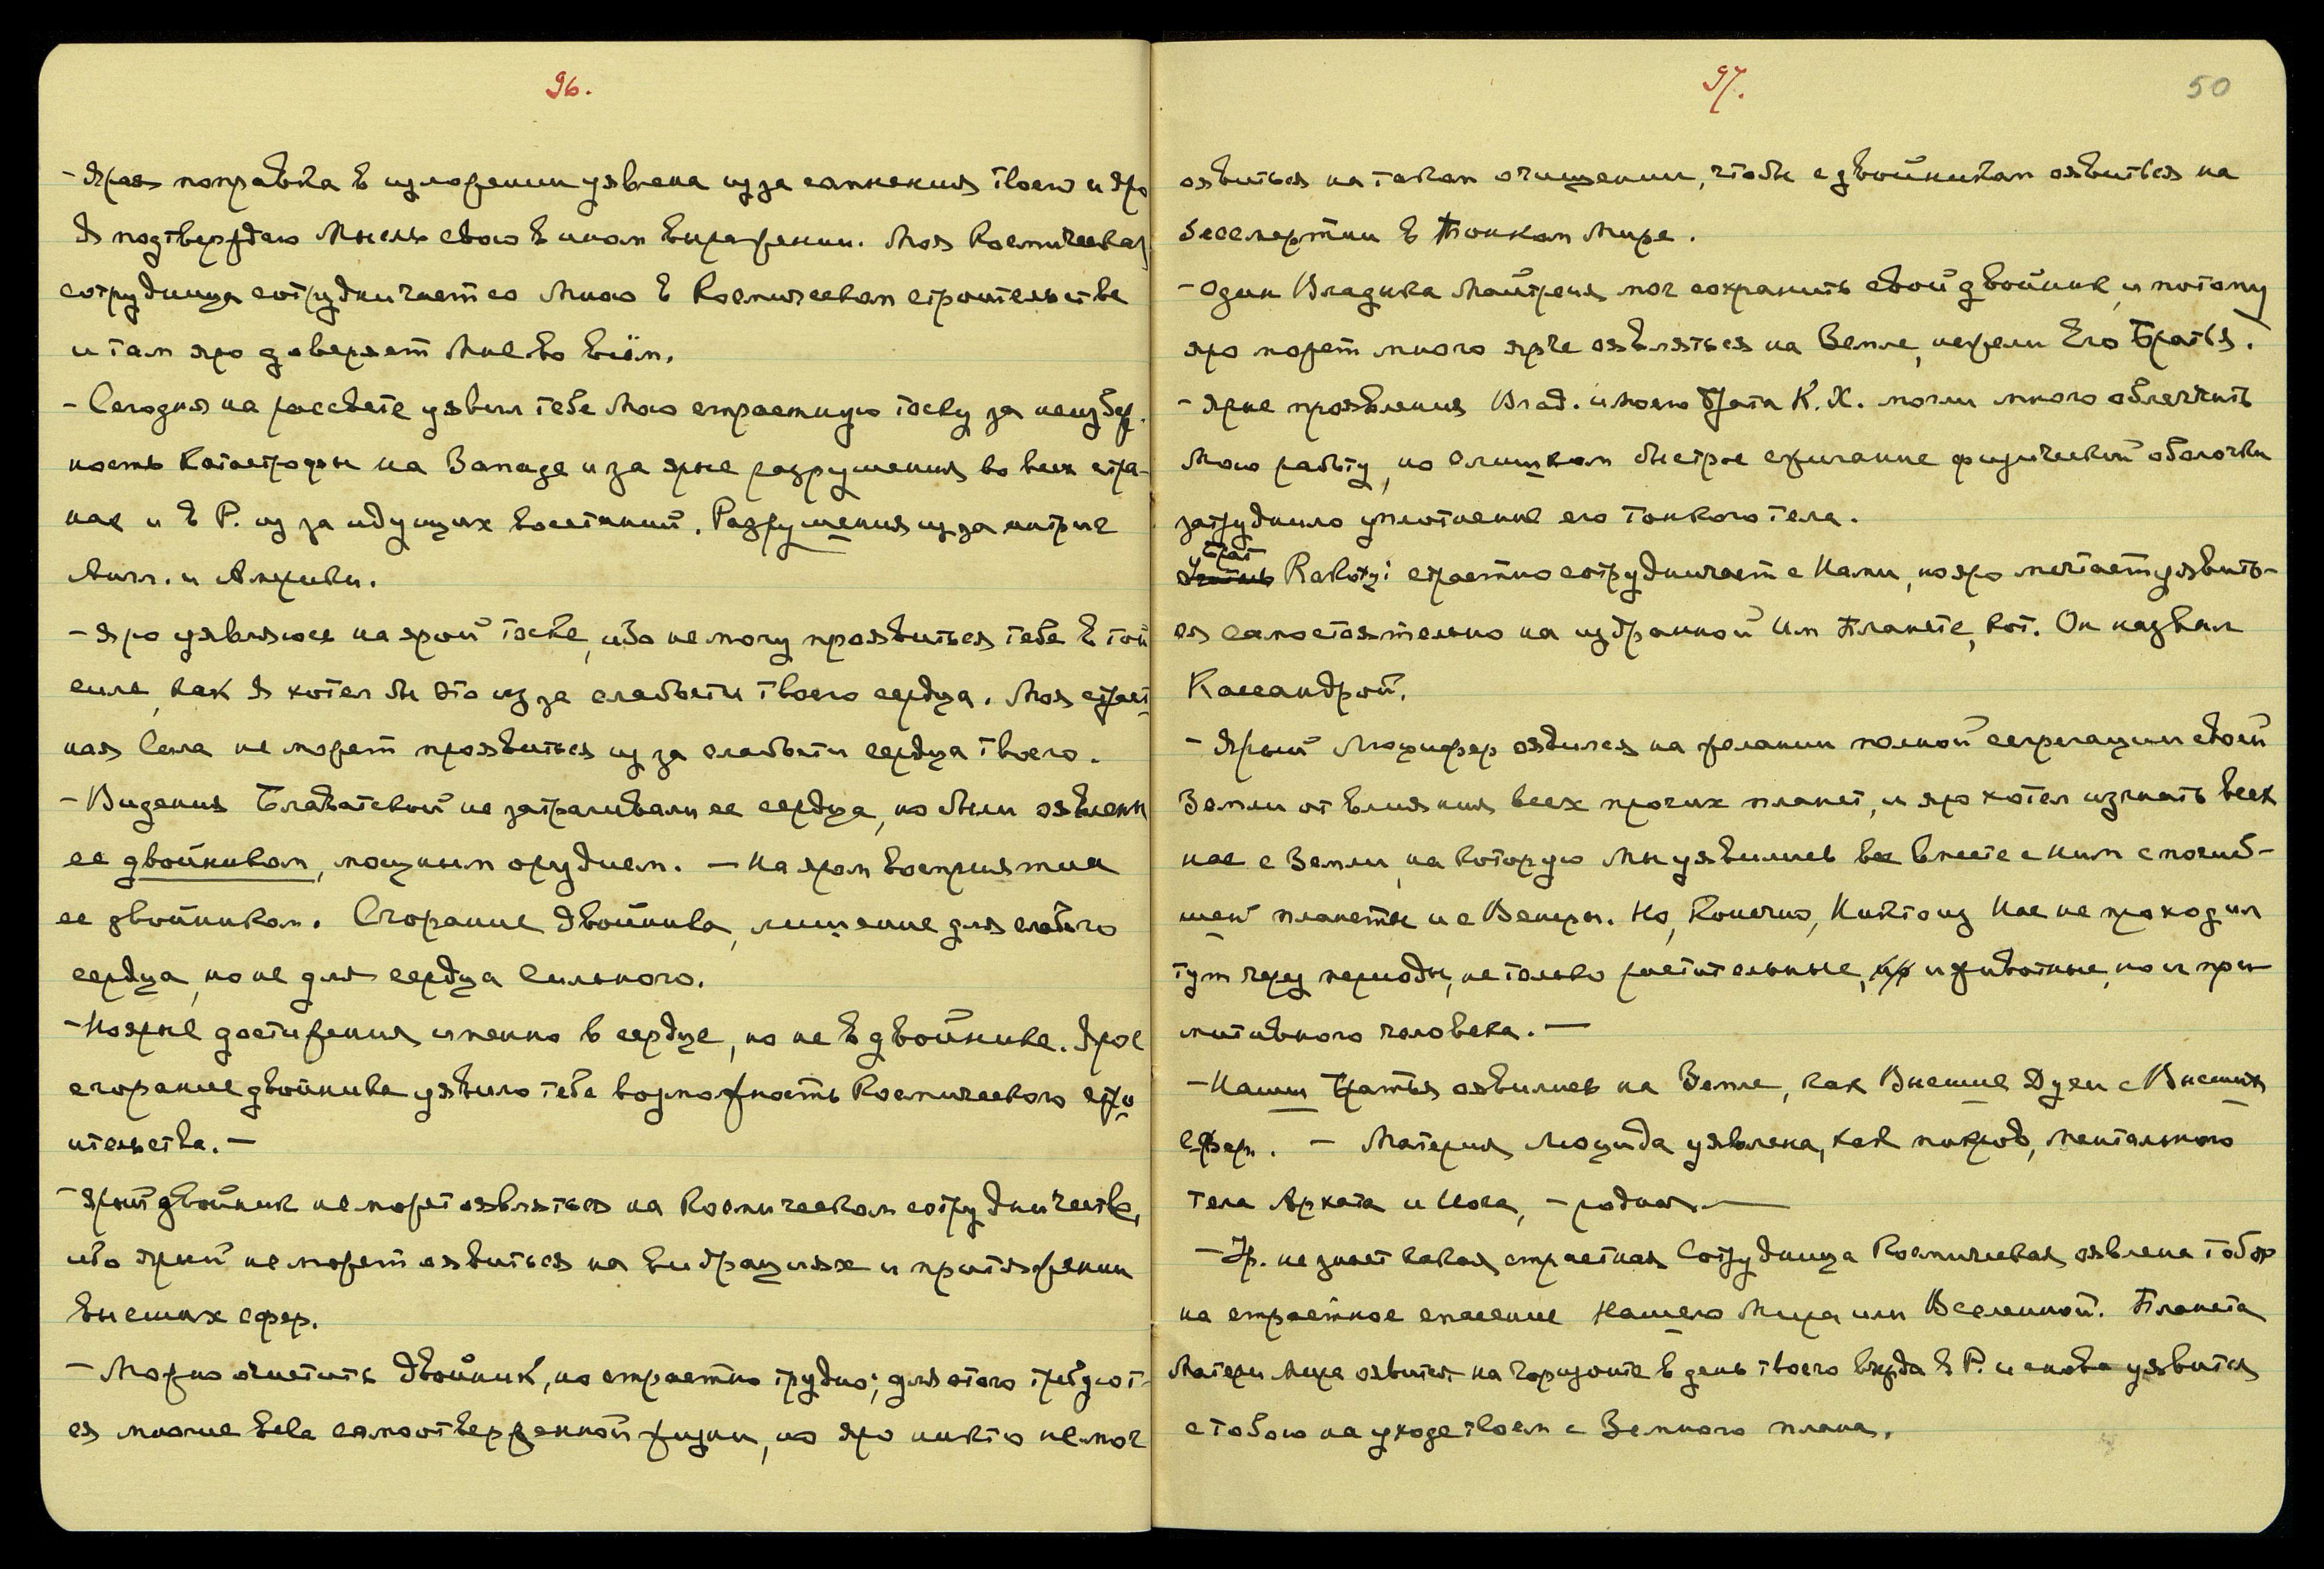 96.
- Ярая поправка в изложении уявлена из за сомнения твоего и яро
Я подтверждаю Мысль свою в ином выражении. Моя Космическая
сотрудница сотрудничает со Мною в Космическом строительстве
и там яро доверяет Мне во всём.
- Сегодня на рассвете уявил тебе Мою страстную тоску за неизбеж.
ность Катастрофы на Западе и за ярые разрушения во всех стра-
нах и в Р. из за идущих восстаний. Разрушения из за интриг
Англ. и Америки.
- Яро уявляюсь на ярой тоске, ибо не могу проявиться тебе в той
силе, как Я хотел бы это из за слабости твоего сердца. Моя страст
ная Сила не может проявиться из за слабости сердца твоего.
- Видения Блаватской не затрагивали ее сердца, но были оявлены
ее двойником, мощным орудием. - На яром восприятии
ее двойником. Сгорание двойника, лишение для слабого
сердца, но не для сердца сильного.
- Но ярые достижения именно в сердце, но не в двойнике. Ярое
сгорание двойника уявило тебе возможность Космического стро
ительства. -
- Ярый двойник не может оявляться на Космическом сотрудничестве,
ибо ярый не может оявиться на вибрациях и притяжении
высших сфер.
- Можно очистить двойник, но страстно трудно; для этого требуют-
ся многие века самоотверженной жизни, но яро никто не мог
97.
50
оявиться на таком очищении, чтобы с двойником оявиться на
бессмертии в Тонком Мире.
- Один Владыка Майтрейя мог сохранить свой двойник, и потому
яро может много ярче оявляться на Земле, нежели Его Братья.
- Ярые проявления Влад. и моего Брата К.Х. могли много облегчить
Мою работу, но слишком быстрое сжигание физической оболочки
затруднило уплотнение его тонкого тела.
Брат
Ракоци страстно сотрудничает с Нами, но яро мечтает уявить-
ся самостоятельно на избранной Им Планете, кот. Он назвал
Кассандрой.
- Ярый Люцифер оявился на желании полной сегрегации своей
Земли от влияния всех прочих планет, и яро хотел изгнать всех
нас с Земли, на которую Мы уявились все вместе с ним с погиб-
шей планеты и с Венеры. Но, Конечно, Никто из Нас не проходил
тут через периоды, не только растительные, и животные, но и при-
митивного человека. -
- Наши Братья оявились на Земле, как Высшие Духи с Высших
Сфер. - Материя Люцида уявлена, как покров, ментального
тела Архата и Моса, - родная -
- Ур. не знает какая страстная Сотрудница Космическая оявлена тобою
на страстное спасение Нашего Мира или Вселенной. Планета
Матери Мира оявится на горизонте в день твоего въезда в Р. и снова уявится
с тобою на уходе твоем с Земного плана.